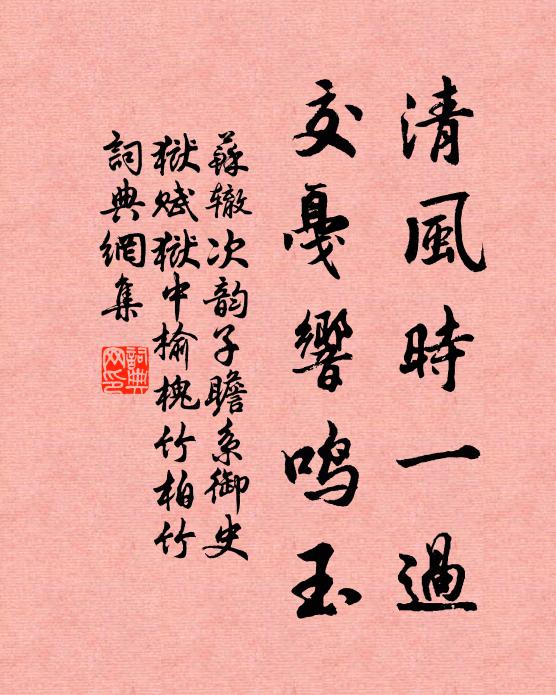 清風時一過
交戛響鳴玉
蘇辙次韵子瞻系御史
獄赋獄中榆槐竹柏竹
詞典網集
詞典网印